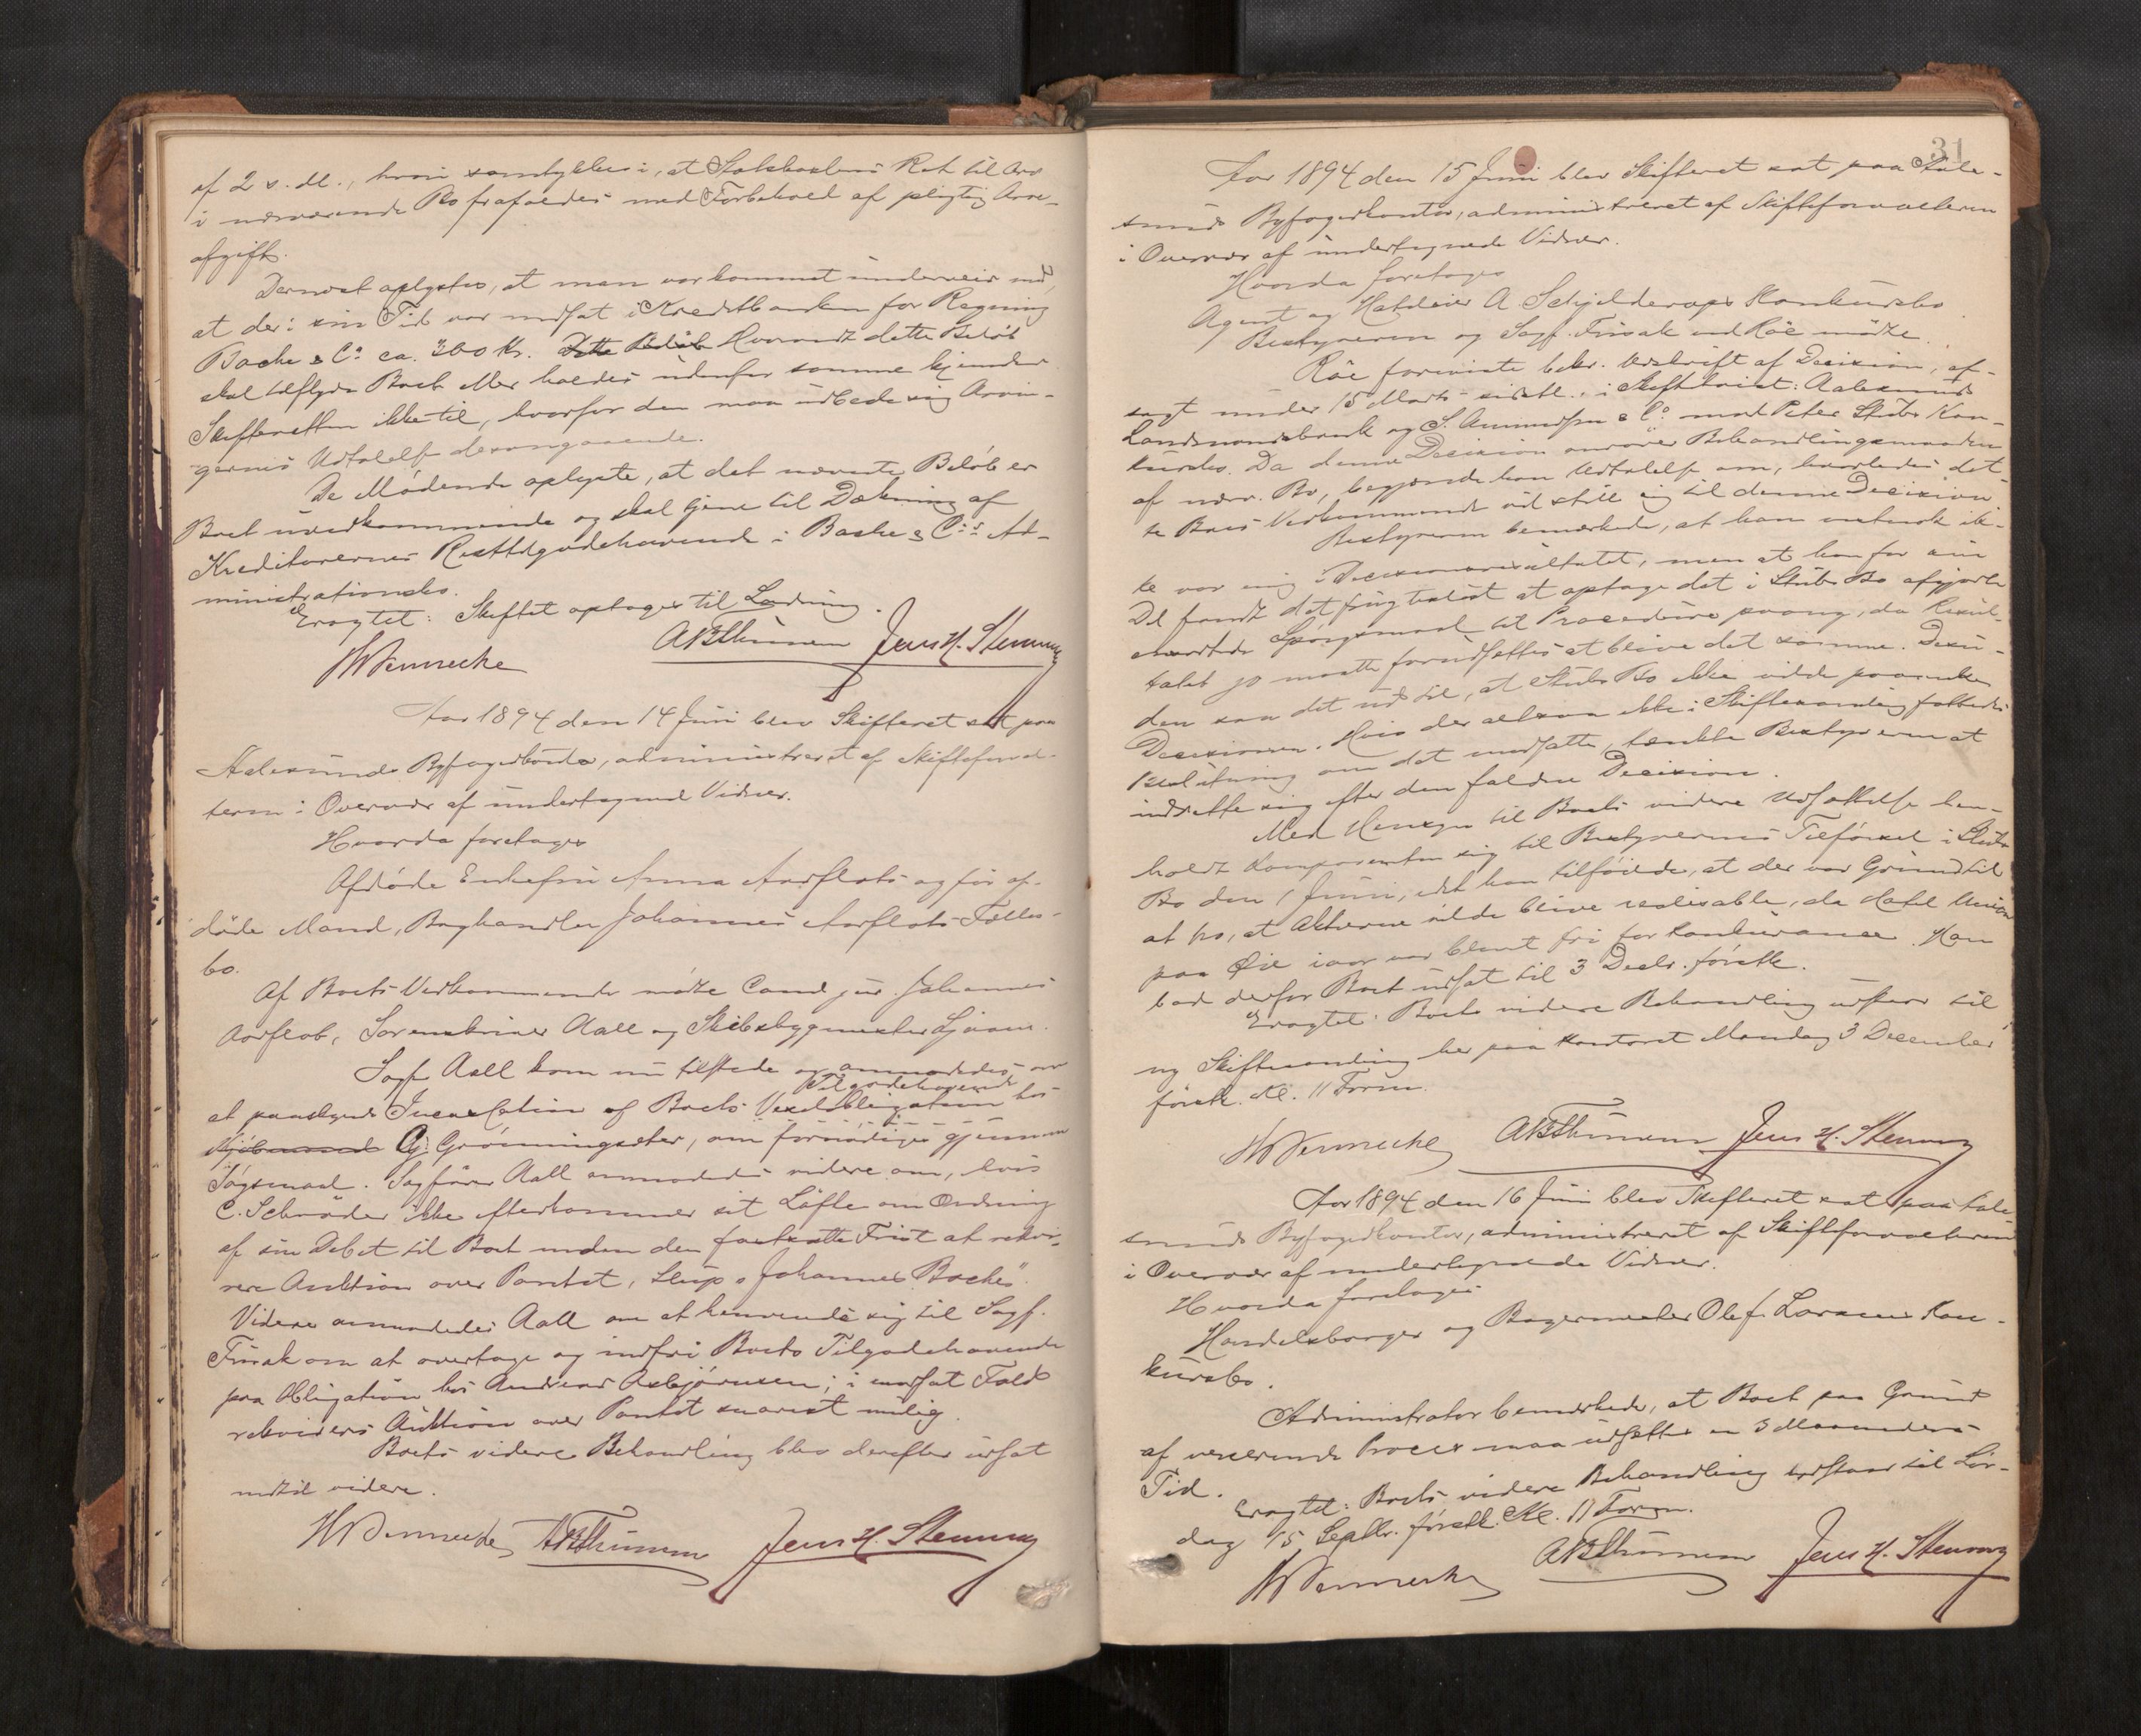 af 2 d. M., hvori samtykkes i, at Statskassens Ret til Arv
i nærværende Bo frafaldes med Forbehold af pligtig Arve-
afgift.
Dernæst oplystes, at man var kommet underveir med,
at der i sin Tid var indsat i Kreditbanken for Regning
Backe & Co ca. 300 Kr. Dette Beløb Hvorvidt dette Beløb
skal tilflyde Boet eller holdes udenfor samme kjender
Skifteretten ikke til, hvorfor den maa udbede sig Arvin-
gernes Udtalelse desangaaende.
De Mødende oplyste, at det nævnte Beløb er
Boet uvedkommende og skal tjene til Dækning af
Kreditorernes Resttilgodehavende i Backe & Co.s Ad-
ministrationsbo.
Eragtet: Skiftet optages til Lodning.
HWennecke ABThunem Jens H. Stenung
Aar 1894 den 14 Juni blev Skifteret sat paa
Aalesunds Byfogedkontor, administreret af Skifteforval-
teren i Overvær af undertegnede Vidner.
Hvorda foretoges
Afdøde Enkefru Anna Aarflots og før af-
døde Mand, Boghandler Johannes Aarflots Fælles-
bo.
Af Boets Vedkommende mødte Cand jur. Johannes
Aarflot, Sorenskriver Aall og Skibsbygmester Liaaen.
Sagf Aall kom nu tilstede og anmodedes om
Tilgodehavende
at paaskynde Incassation af Boets Vexelobligation hos
Kjøbmand Gj. Grønningsæter, om fornødiges gjennem
Søgsmaal. Sagfører Aall anmodedes videre om, hvis
C. Schrøder ikke efterkommer sit Løfte om Ordning
af sin Debet til Boet inden den fastsatte Frist at rekvi-
rere Auktion over Pantet, Slup „Johannes Backe".
Videre anmodedes Aall om at henvende sig til Sagf.
Frisak om at overtage og indfri Boets Tilgodehavende
paa Obligation hos Andreas Asbjørnsen; i modsat Fald
rekvireres Auktion over Pantet snarest mulig.
Boets videre Behandling blev derefter udsat
indtil videre.
HWennecke ABThunem Jens H. Stenung
31
Aar 1894 den 15 Juni blev Skifteret sat paa Aale-
sunds Byfogedkontor, administreret af Skifteforvalteren
i Overvær af undertegnede Vidner.
Hvorda foretoges
Agent og Hoteleier A Schjelderups Konkursbo.
Bestyreren og Sagf. Frisak ved Röe mødte.
Röe foreviste bekr. Udskrift af Decision, af-
sagt under 15 Marts sidstl. i Skiftetvist: Aalesunds
Landmandsbank og S. Amundsen & Co. mod Peter Stubs Kon-
kursbo. Da denne Decision omrører Behandlingsmaaden
af nærv. Bo, begjærede han Udtalelse om, hvorledes det-
te Boes Vedkommende vil stille sig til denne Decision
Bestyreren bemærkede, at han vistnok ik-
ke var enig i Decisionsresultatet, men at han for sin
Del fandt det frugtesløst at optage det i Stubs Bo afgjorte
Spørgsmaal til Procedure paany, da Resul-
tatet jo maatte forudsættes at blive det samme. Desu-
den saa det ud til, at Stubs Bo ikke vilde paaanke
Decisionen. Hvis der altsaa ikke i Skiftesamling fattedes
Beslutning om det modsatte, tænkte Bestyreren at
indrette sig efter den faldne Decision.
Med Hensyn til Boets videre Udsættelse hen-
holdt Komparenten sig til Bestyrerens Tilførsel i Stubs
Bo den 1 Juni, idet han tilføiede, at der var Grund til
at tro, at Aktierne vilde blive realisable, da Hotel Union
paa Øie iaar var blevet fri for Konkurance. Han
bad derfor Boet udsat til 3 Decbr. førstk.
Eragtet: Boets videre Behandling udstaar til
ny Skiftesamling her paa Kontoret Mandag 3 December
førstk. Kl. 11 Form.
HWennecke ABThunem Jens H. Stenung
Aar 1894 den 16 Juni blev Skifteret sat paa Aale-
sunds Byfogedkontor, administreret af Skifteforvalteren
i Overvær af undertegnede Vidner.
Hvorda foretoges
Handelsborger og Bagermester Olef. Larsens Kon-
kursbo.
Administrator bemærkede, at Boet paa Grund
af verserende Proces maa udsættes en 3 Maaneders
Tid.
Eragtet: Boets videre Behandling udstaar til Lør-
dag 15 Septbr. førstk. Kl. 11 Form.
HWennecke ABThunem Jens H. Stenung